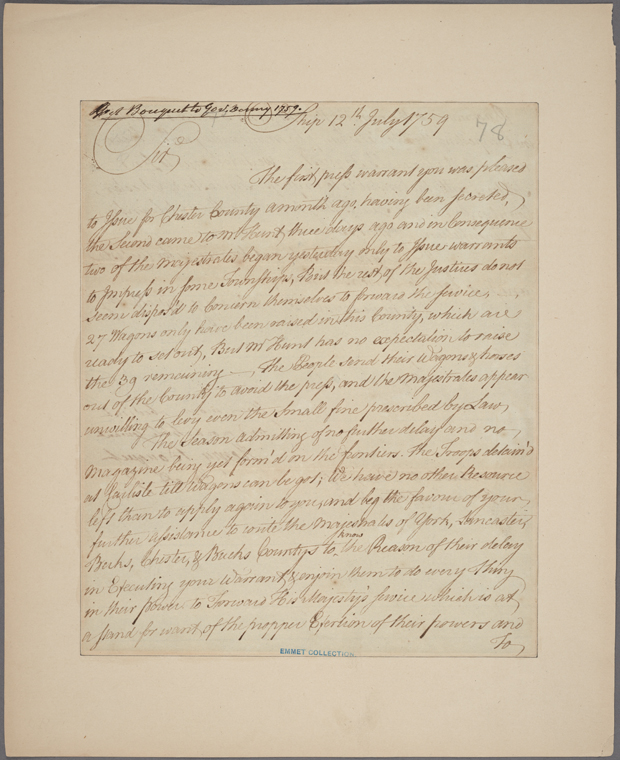 Bouquet to Gov. Denny 1759.
Ship 12th July 1759
78
Sir
The first press warrant you was pleased
to Issue for Chester County a month ago, having been secreted,
the Second came to Mr Hunt three days ago and in Consequence
two of the majestrates began yesterday only to Issue warrants
to Impress in some Townships, But the rest of the Justices do not
seem dispos'd to Concern themselves to forward the service,
27 Wagons only have been raised in this County, which are
ready to set out, But Mr Hunt has no expectation to raise
the 39 remaining— The People send their Wagons & horses
out of the County to avoid the press, and the Majestrates appear
unwilling to levy even the Small fine prescribed by Law,
The Season admitting of no further delay and no
Magazine being yet form'd on the frontiers. the Troops detain'd
at Carlisle till Wagons can be got; We have no other Resource
left than to apply again to you, and beg the favour of your
further assistance to write the Majestrates of York, Lancaster,
Berks, Chester, & Bucks Countys to, the Reason of their delay
know
in Executing your Warrant, & enjoin them to do every thing
in their power to Forward His Majesty's service which is at
a stand for want of the propper Exertion of their powers and
To
EMMET COLLECTION